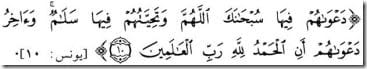 ﴿دَعْوَىٰهُمْ فِيهَا سُبْحَـٰنَكَ ٱللَّهُمَّ وَتَحِيَّتُهُمْ فِيهَا سَلَـٰمٌ ۚ وَءَاخِرُ
دَعْوَىٰهُمْ أَنِ ٱلْحَمْدُ لِلَّهِ رَبِّ ٱلْعَـٰلَمِينَ ١٠﴾ [يونس: ١٠].